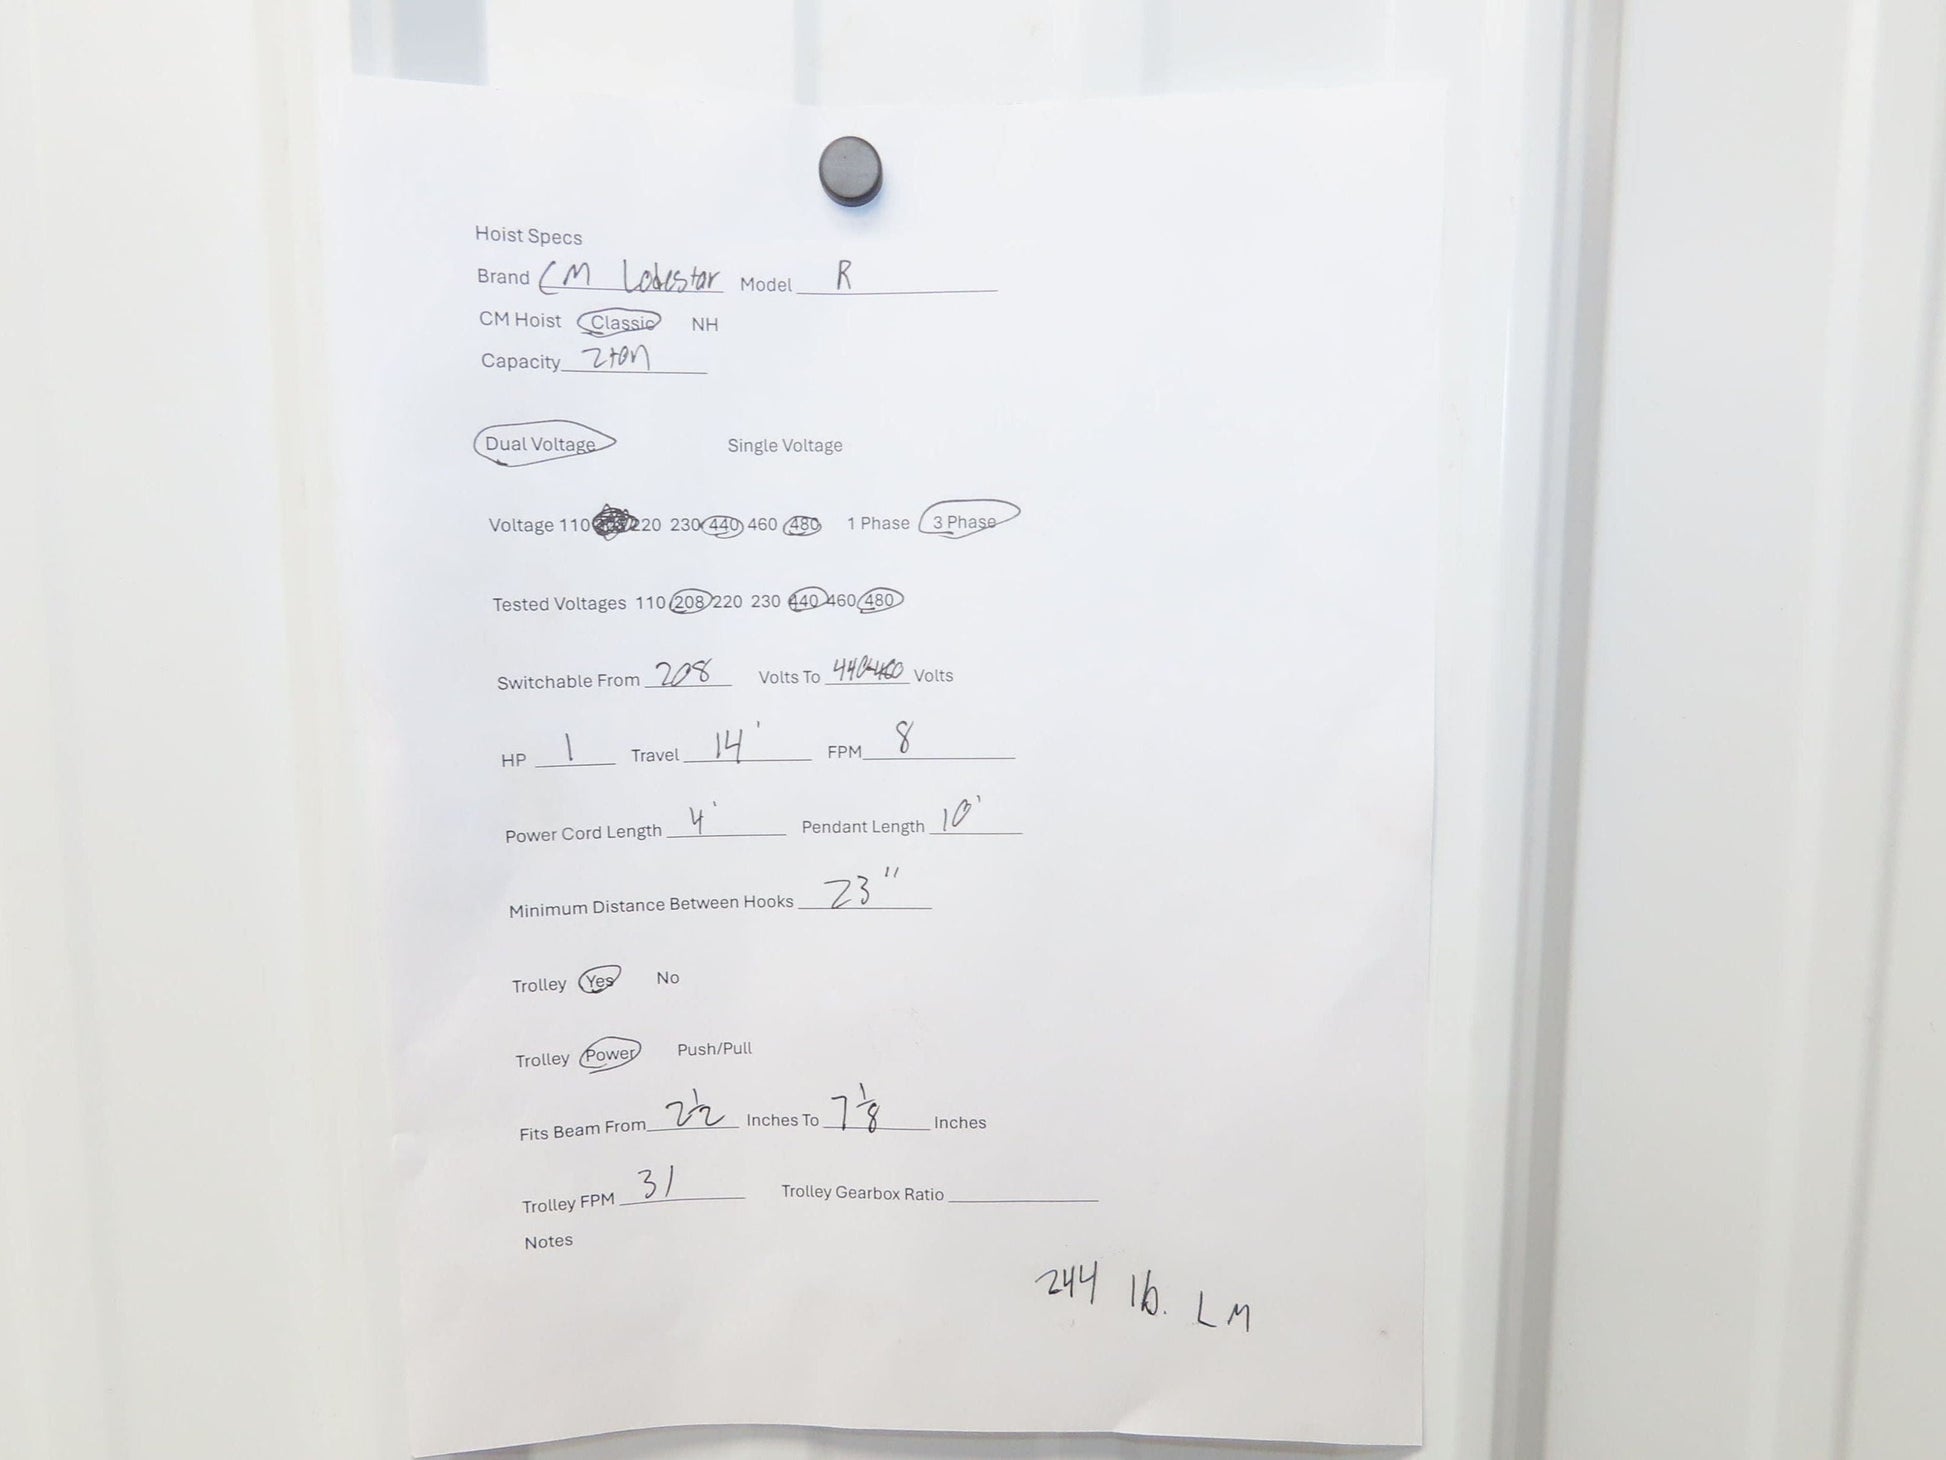 Hoist Specs
Brand CM Lodestar Model R
CM Hoist Classic NH
Capacity 2ton
Dual Voltage Single Voltage
Voltage 110 208 220 230 440 460 480 1 Phase 3 Phase
Tested Voltages 110 208 220 230 440 460 480
Switchable From 208 Volts To 440-460 Volts
HP 1 Travel 14' FPM 8
Power Cord Length 4' Pendant Length 10'
Minimum Distance Between Hooks 23"
Trolley Yes No
Trolley Power Push/Pull
Fits Beam From 2 1/2 Inches To 7 1/8 Inches
Trolley FPM 31 Trolley Gearbox Ratio
Notes
244 lb. LM